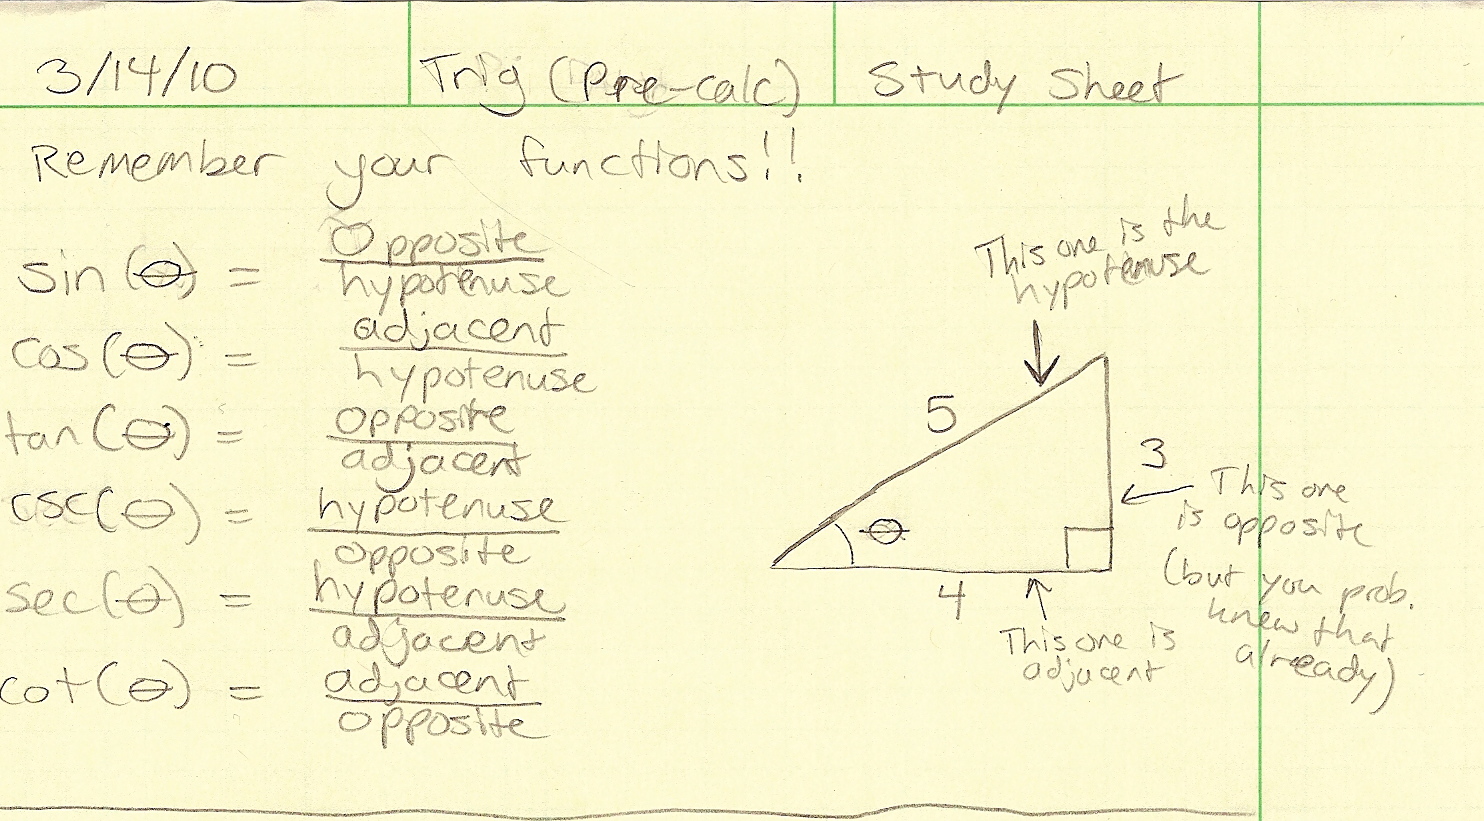 3/14/10 Trig (Pre-calc) Study Sheet
Remember your functions!!
sin(θ) = opposite
hypotenuse
cos(θ) = adjacent
hypotenuse
tan(θ) = opposite
adjacent
csc(θ) = hypotenuse
opposite
sec(θ) = hypotenuse
adjacent
cot(θ) = adjacent
opposite
This one is the
hypotenuse
5
3
θ
4
This one
is opposite
(but you prob.
knew that
already)
This one is
adjacent